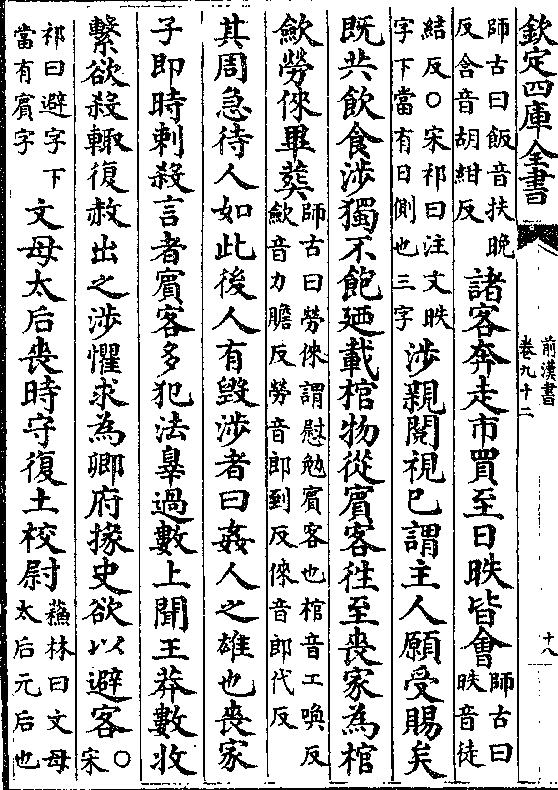 欽定四庫全書
前漢書
卷九十二
十八
師古曰飯音扶晚
反含音胡紺反
諸客奔走市買至日昳皆會
師古曰
昳音徒
結反○宋祁曰注文昳
字下當有日側也三字
涉親閱視已謂主人願受賜矣
既共飲食涉獨不飽廼載棺物從賓客徃至喪家為棺
歛勞倈畢葬
師古曰勞倈謂慰勉賓客也棺音工喚反
歛音力贍反勞音郎到反倈音郎代反
其周急待人如此後人有毀涉者曰姦人之雄也喪家
子即時刺殺言者賓客多犯法辠過數上聞王莽數收
繫欲殺輙復赦出之涉懼求為卿府掾史欲以避客
○
宋
祁曰避字下
當有賓字
文母太后喪時守復土校尉
蘇林曰文母
太后元后也